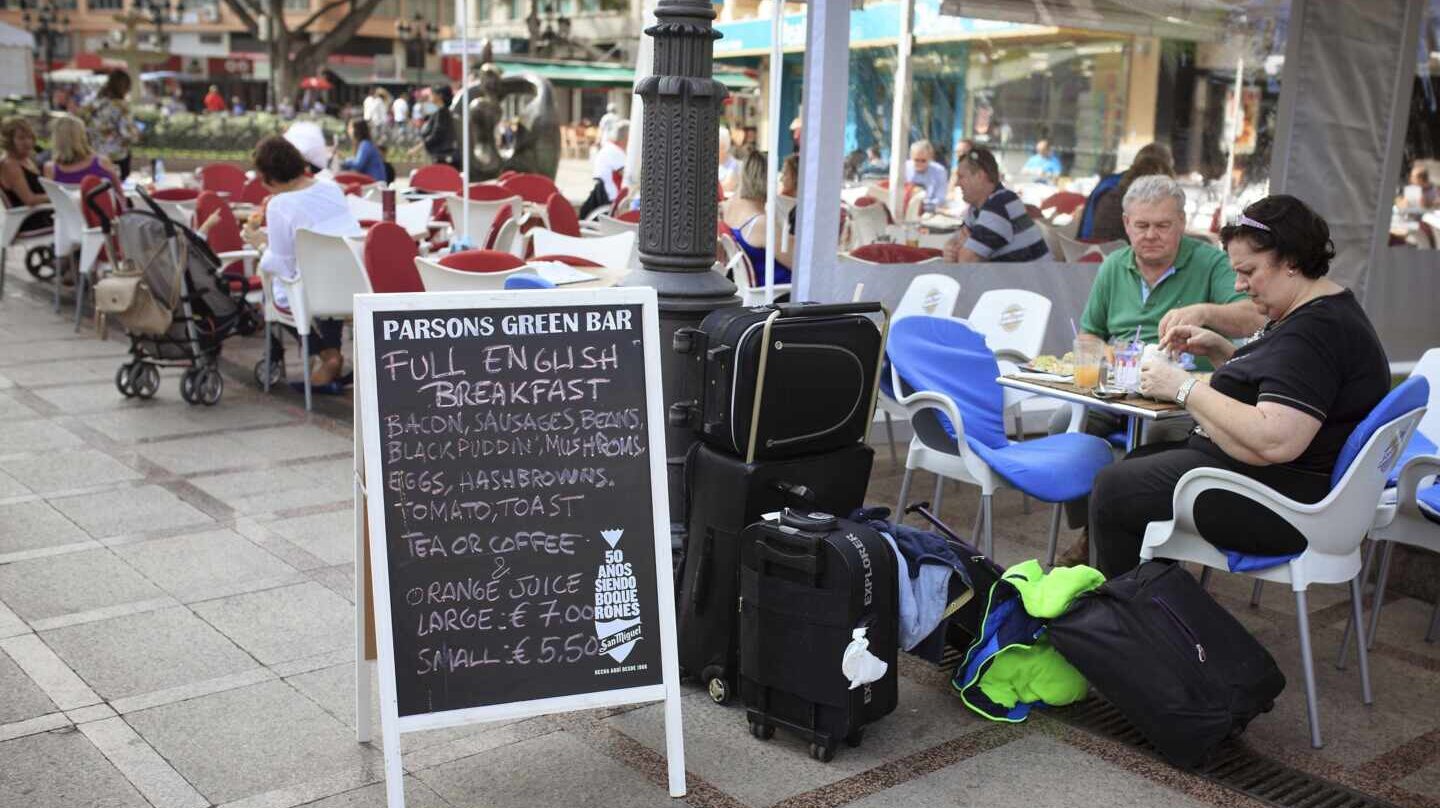 PARSONS GREEN BAR
FULL ENGLISH
BREAKFAST
BACON, SAUSAGES, BEANS,
BLACK PUDDIN', MUSHROMS,
EGGS, HASHBROWNS.
TOMATO, TOAST
TEA OR COFFEE
&
ORANGE JUICE
LARGE: € 7.00
SMALL: € 5,50
50
AÑOS
SIENDO
BOQUE
RONES
San Miguel
HECHO AQUÍ DESDE 1966
EXPLORER